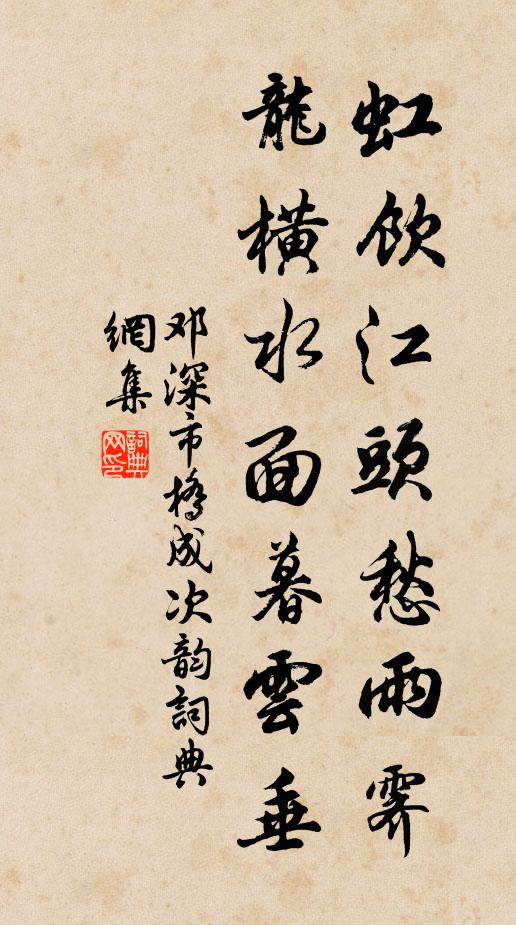 虹飲江頭愁雨霽
龍橫水面暮雲垂
邓深市橋成次韵詞典
網集
詞典
网印